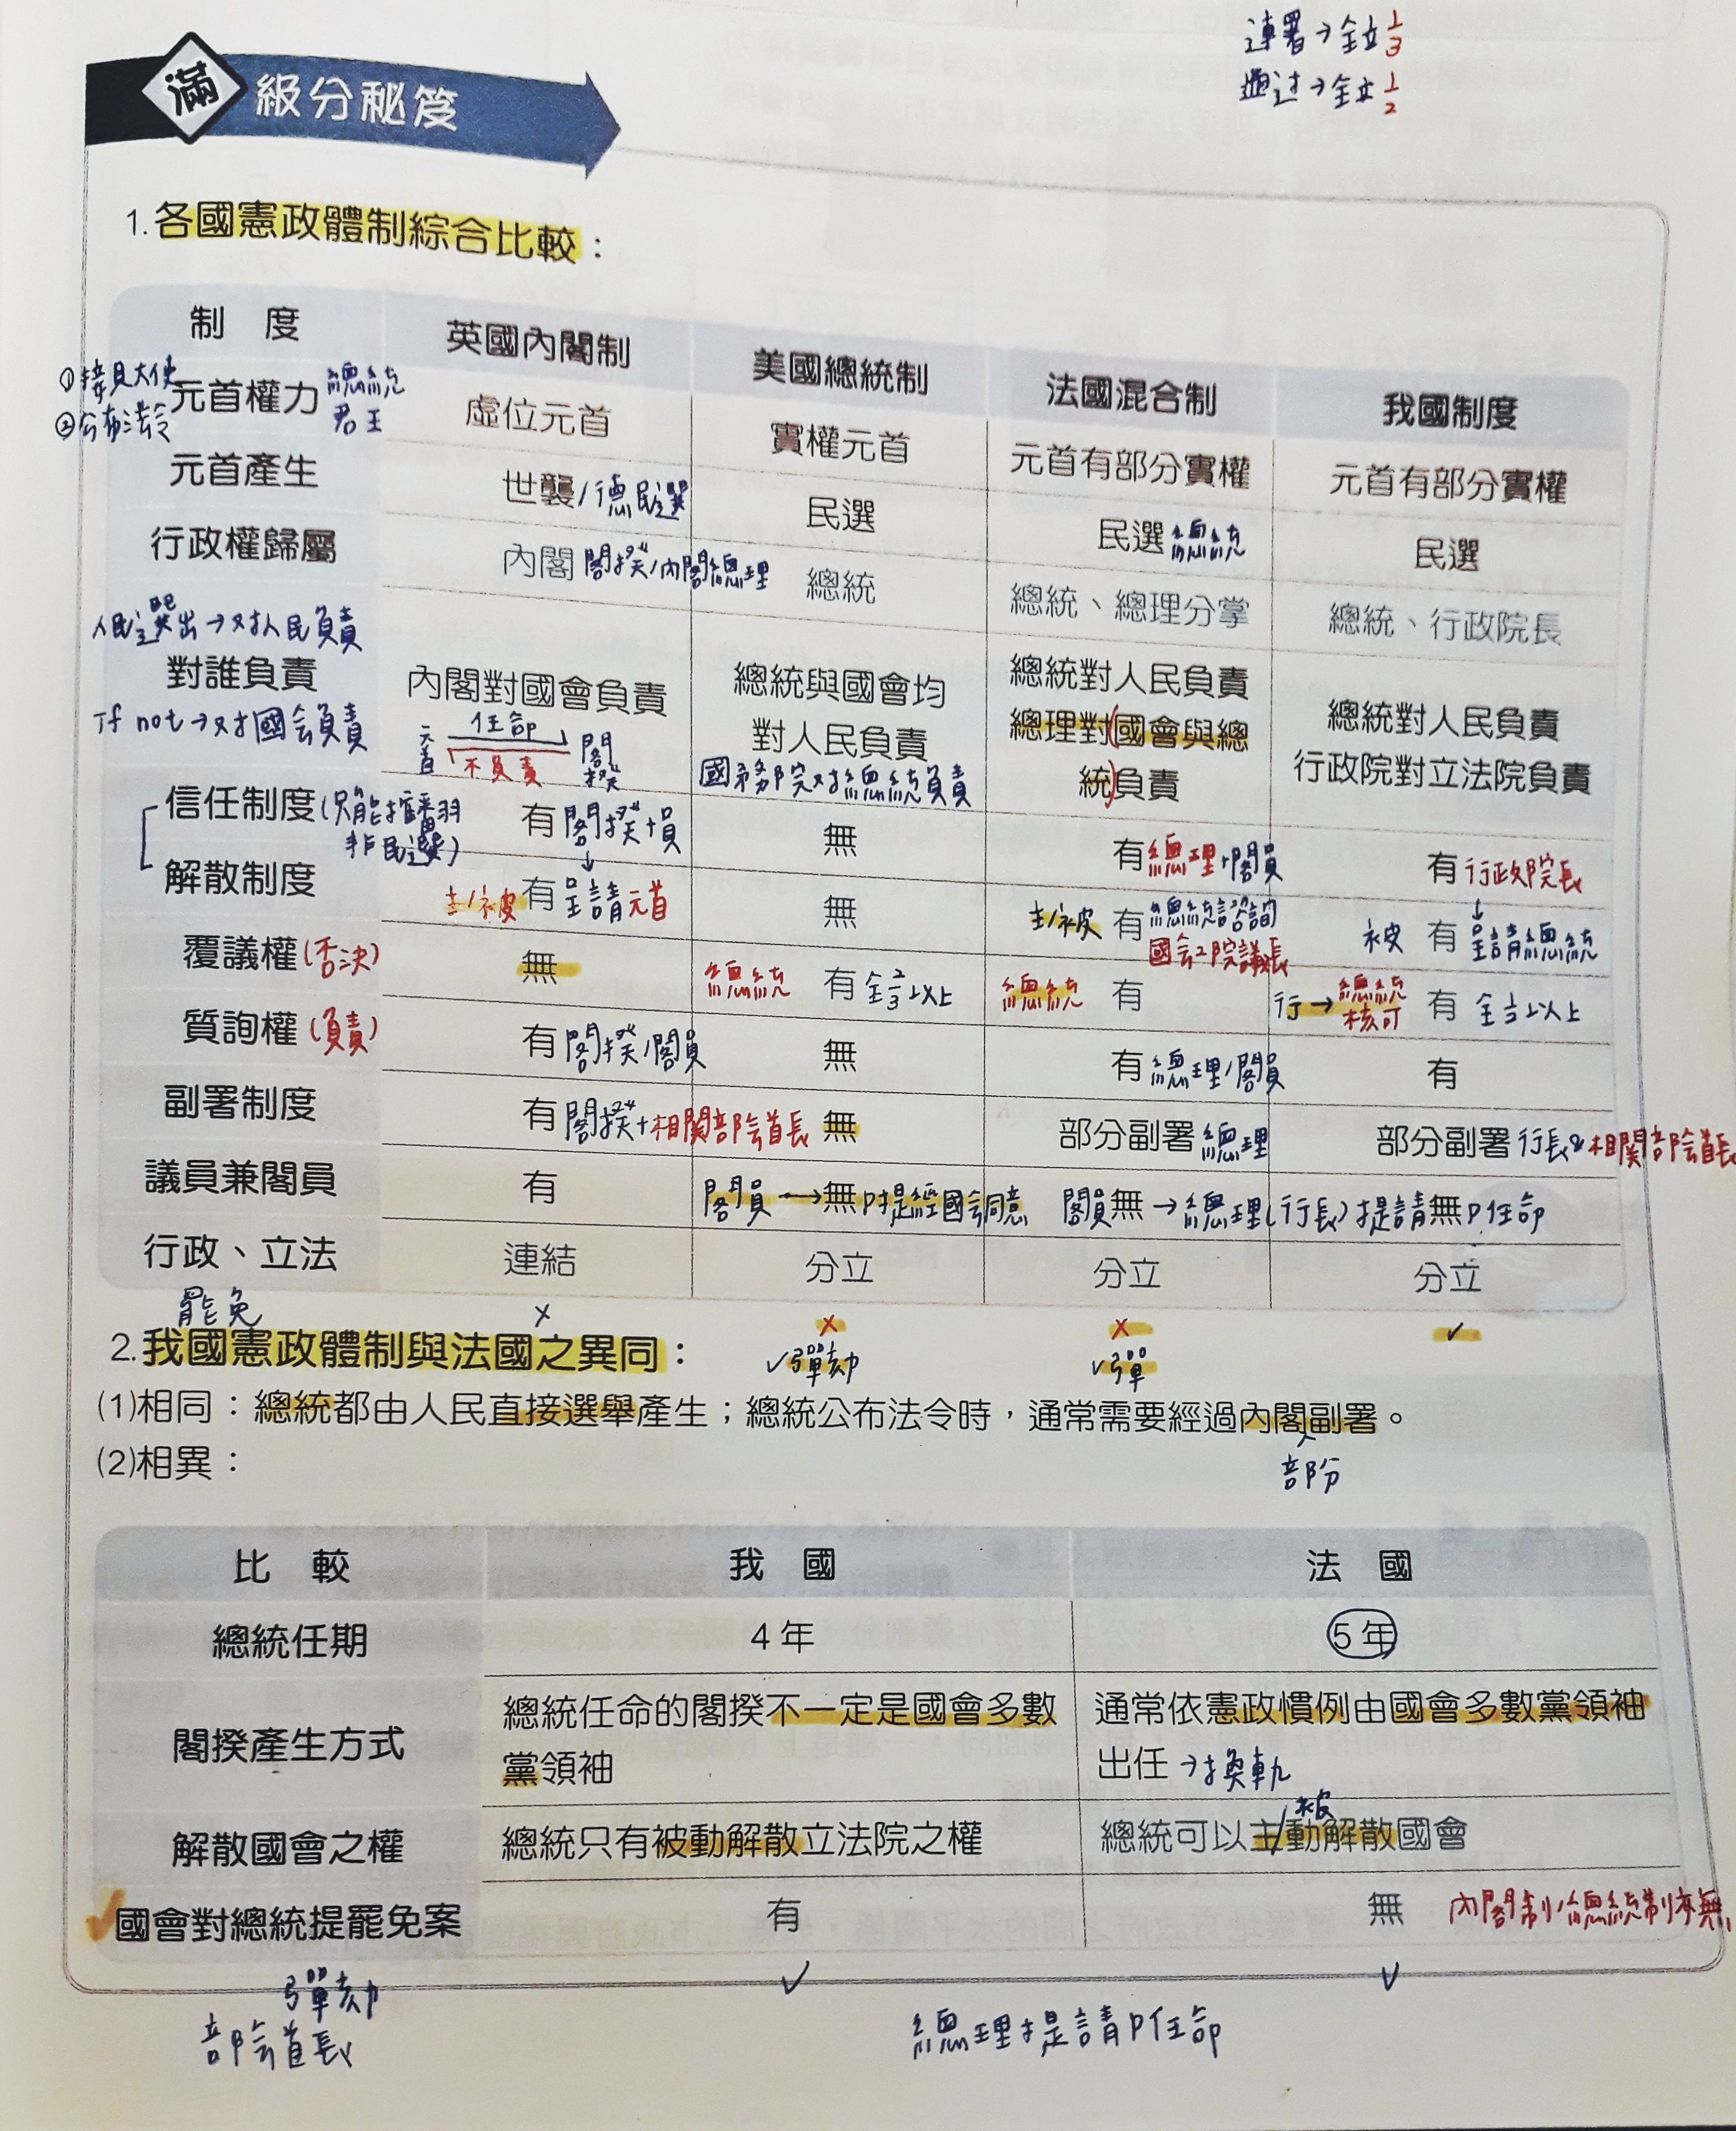 連署→全立1/3
通过→全立1/2
滿級分秘笈
1.各國憲政體制綜合比較：
制 度 英國內閣制 美國總統制 法國混合制 我國制度
①接見大使
②公布法令
元首權力 總統 君王 虛位元首 實權元首 元首有部分實權 元首有部分實權
元首產生 世襲/德民選 民選 民選 總統 民選
行政權歸屬 內閣 閣揆/內閣總理 總統 總統、總理分掌 總統、行政院長
人民選出→对人民負責
對誰負責 內閣對國會負責 總統與國會均 總統對人民負責 總統對人民負責
對人民負責 總理對(國會與總 行政院對立法院負責
If not→对國会負責 元首 任命 不負責 閣揆 國務院对總統負責 統)負責
信任制度(只能推翻非民選) 有 閣揆+員 無 有 總理+閣員 有 行政院長
解散制度 主/被 有 呈請元首 無 主/被 有 總統諮詢國会2院議長 被 有 呈請總統
覆議權(否決) 無 總統 有 全2/3以上 總統 有 行→總統核可 有 全1/2以上
質詢權(負責) 有 閣揆/閣員 無 有 總理/閣員 有
副署制度 有 閣揆+相關部会首長 無 部分副署 總理 部分副署 行長&相關部会首長
議員兼閣員 有 閣員→無 P提經國会同意 閣員無→總理(行長)提請無P任命
行政、立法 連結 分立 分立 分立
罷免 × × × ✓
2.我國憲政體制與法國之異同：
✓彈劾 ✓彈
(1)相同：總統都由人民直接選舉產生；總統公布法令時，通常需要經過內閣副署。
部份
(2)相異：
比 較 我 國 法 國
總統任期 4年 5年
閣揆產生方式 總統任命的閣揆不一定是國會多數 通常依憲政慣例由國會多數黨領袖
黨領袖 出任→換軌
解散國會之權 總統只有被動解散立法院之權 總統可以主/被動解散國會
✓國會對總統提罷免案 有 無 內閣制/總統制亦無
彈劾 ✓ ✓
部会首長 總理提請P任命